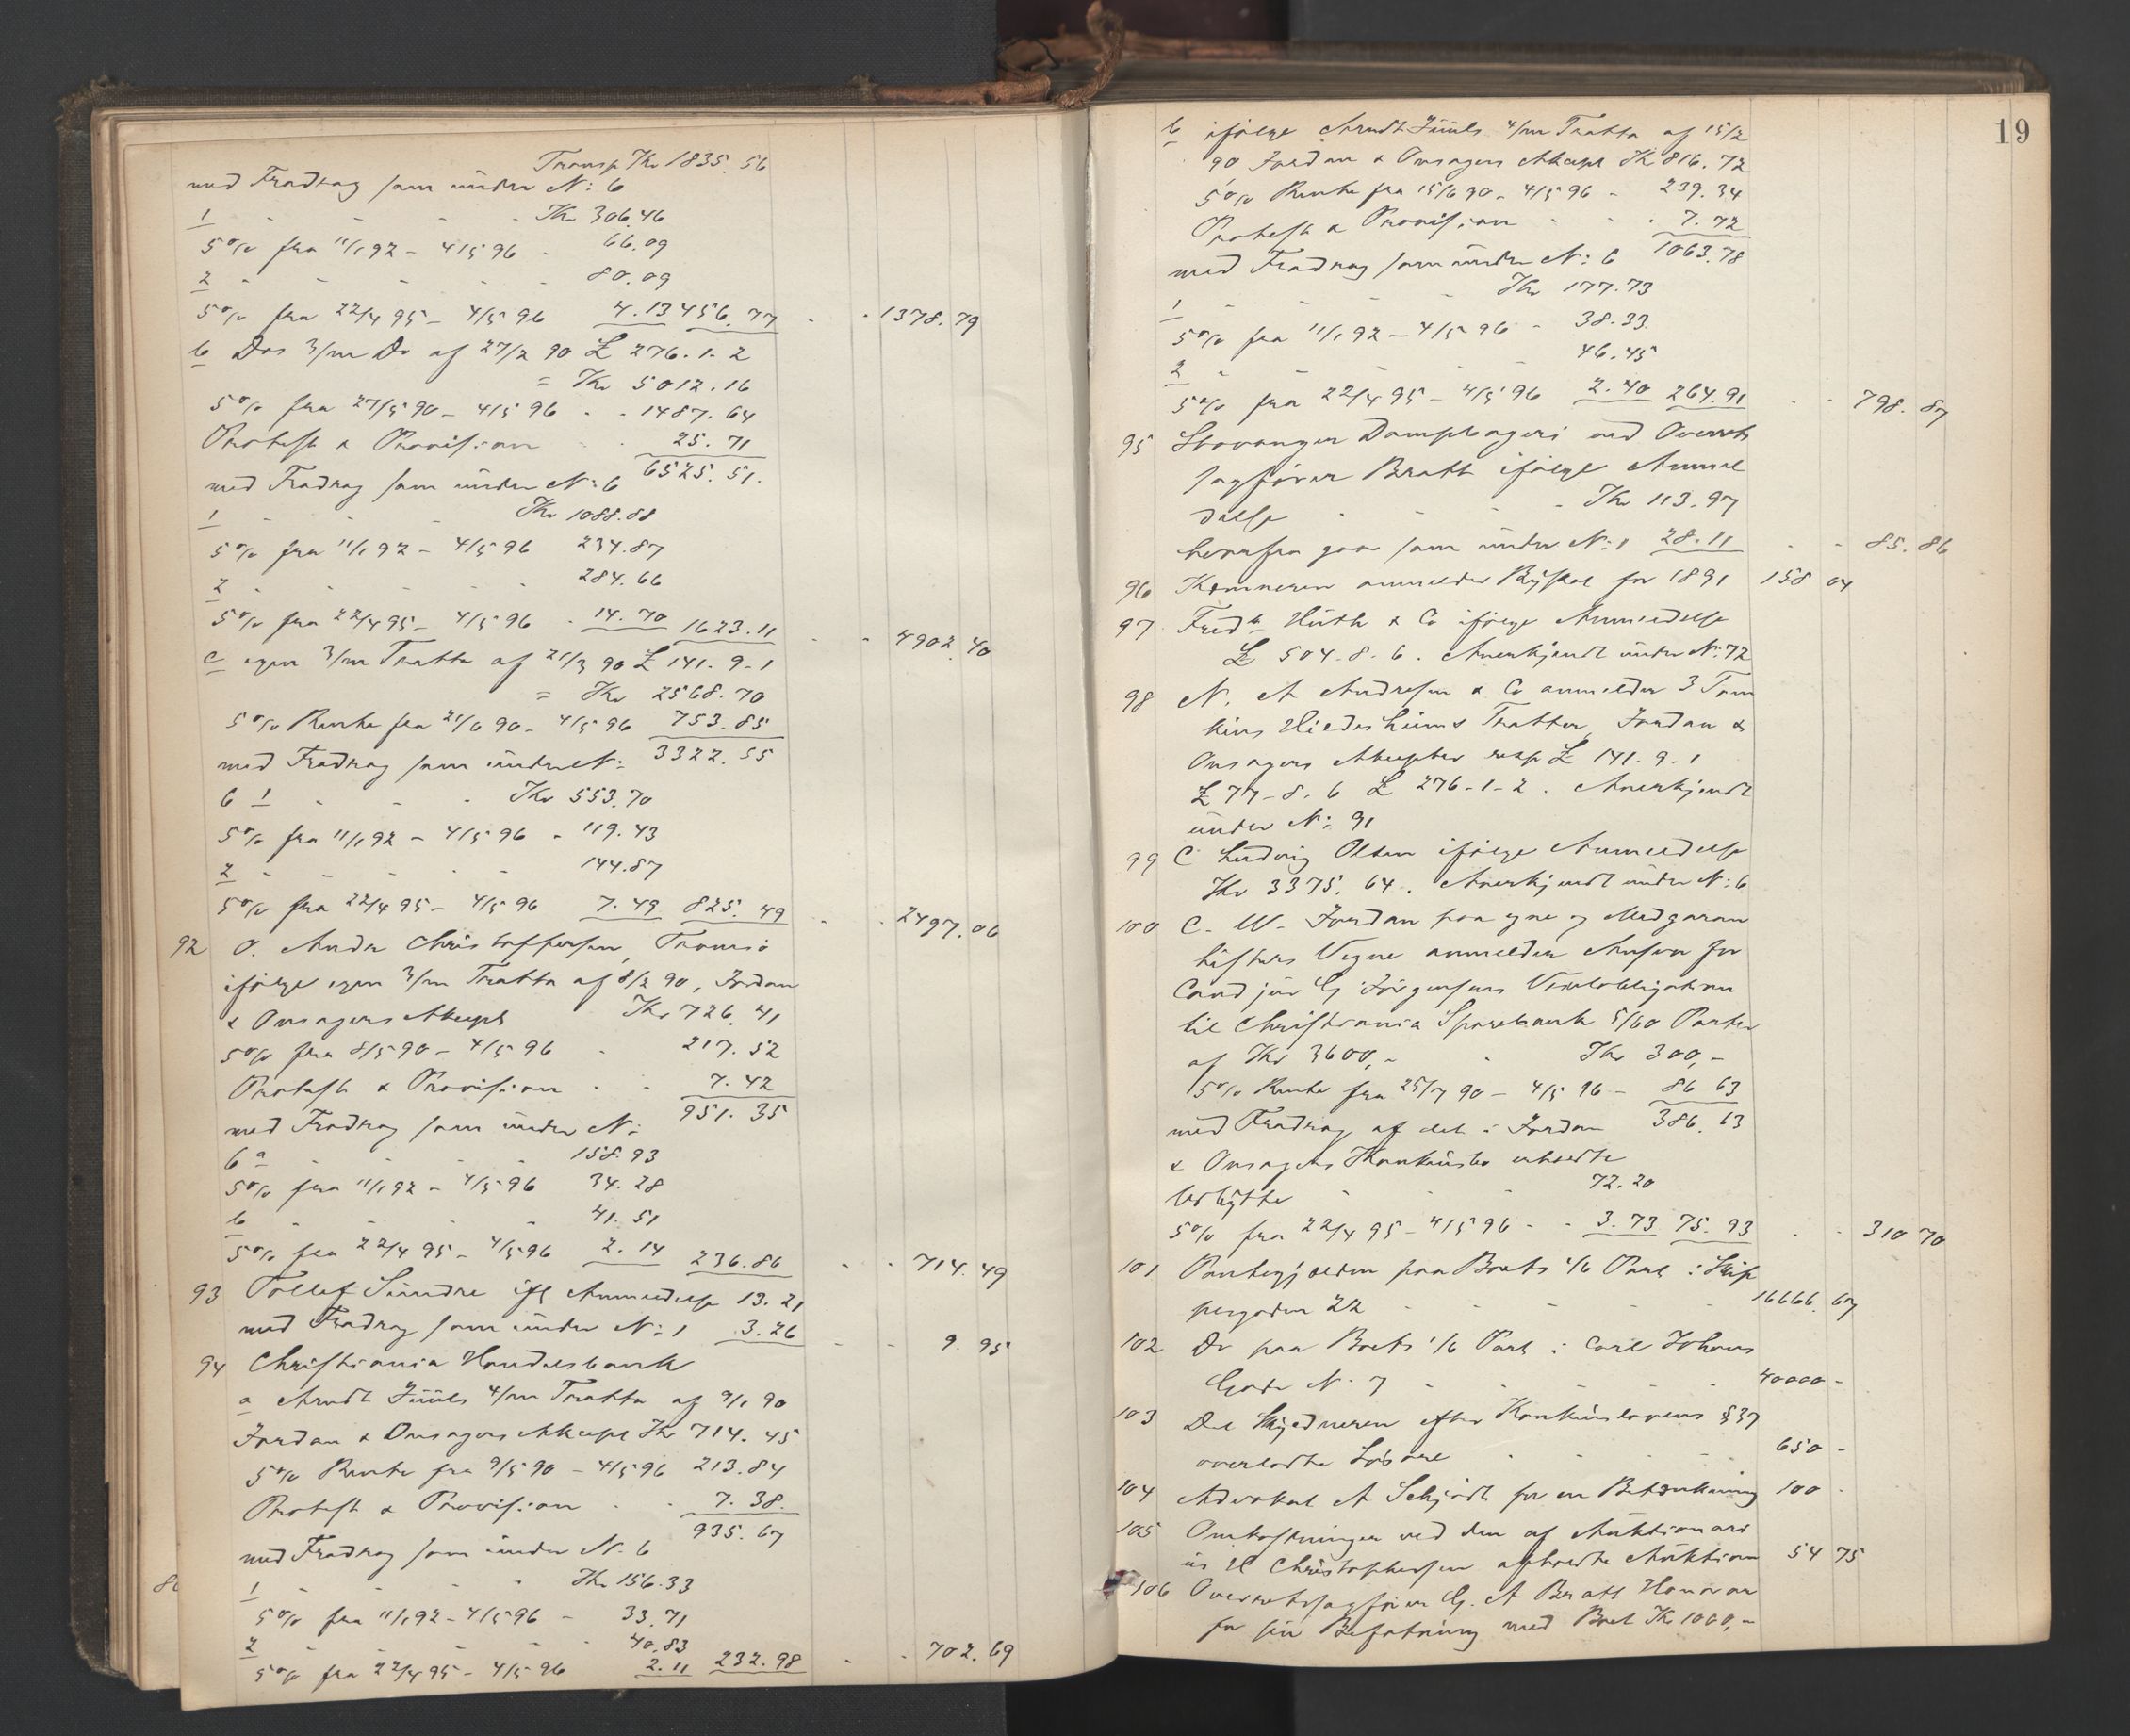 Transp Kr 1835.56
med Fradrag som under N: 6
1 - - - - Kr 306.46
5% fra 11/1 92 - 4/5 96 - 66.09
2 - - - - - 80.09
5% fra 22/4 95 - 4/5 96 4.13 456.77 - - 1378.79
b Dos 3/m Do af 27/2 90 £ 276.1.2
= Kr 5012.16
5% fra 27/5 90 - 4/5 96 - - 1487.64
Protest & Provision - - 25.71
6525.51.
med Fradrag som under N: 6
1 - - - Kr 1088.88
5% fra 11/1 92 - 4/5 96 234.87
2 - - - - - 284.66
5% fra 22/4 95 - 4/5 96 - 14.70 1623.11 - - 4902.40
c egen 3/m Tratta af 21/3 90 £ 141.9.1
= Kr 2568.70
5% Rente fra 21/6 90 - 4/5 96 753.85
3322.55
med Fradrag som under N:
6 1 - - - Kr 553.70
5% fra 11/1 92 - 4/5 96 - 119.43
2 - - - - - 144.87
5% fra 22/4 95 - 4/5 96 7.49 825.49 - - 2497.06
92 O. Andr Christoffersen, Tromsö
ifølge egen 3/m Tratta af 8/2 90, Jordan
& Onsagers Akcept Kr 726.41
5% fra 8/5 90 - 4/5 96 - 217.52
Protest & Provision - - 7.42
951.35
med Fradrag som under N:
6 a - - - - 158.93
5% fra 11/1 92 - 4/5 96 34.28
b - - - - 41.51
5% fra 22/4 95 - 4/5 96 2.14 236.86 - - 714.49
93 Tollef Sundre ifl Anmeldelse 13.21
med Fradrag som under N: 1 3.26 - - 9.95
94 Christiania Handelsbank
a Arndt Juuls 4/m Tratta af 9/1 90
Jordan & Onsagers Akcept Kr 714.45
5% Rente fra 9/5 90 - 4/5 96 213.84
Protest & Provision - - 7.38.
935.67
med Fradrag som under N. 6
1 - - - - Kr 156.33
5% fra 11/1 92 - 4/5 96 - 33.71
2 - - - - - 40.83
5% fra 22/4 95 - 4/5 96 2.11 232.98 - - 702.69
19
b ifølge Arndt Juuls 4/m Tratta af 15/2
90 Jordan & Onsagers Akcept Kr 816.72
5% Rente fra 15/6 90 - 4/5 96 - 239.34
Protest & Provision - - - 7.72
1063.78
med Fradrag som under N: 6
1 - - - - Kr 177.73
5% fra 11/1 92 - 4/5 96 - 38.33
2 - - - - - 46.45
5% fra 22/4 95 - 4/5 96 2.40 264.91 - - 798.87
95 Stavanger Dampbageri ved Overrets
sagförer Bratt ifølge Anmel
delse - - - - Kr 113.97
herfra gaar som under N: 1 28.11 - - 85.86
96 Kemneren anmelder Byskat for 1891 158 04
97 Fredk Huth & Co ifølge Anmeldelse
£ 504-8-6. Anerkjendt under N: 72
98 N. A Andresen & Co anmelder 3 Tom
kins Hildesheims Tratter, Jordan &
Onsagers Akcepter resp £ 141.9.1
£ 77-8-6 £ 276-1-2. Anerkjendt
under N: 91
99 C Ludvig Olsen ifølge Anmeldelse
Kr 3375.64. Anerkjendt under N: 6
100 C. W. Jordan paa egne og Medgaran
tisters Vegne anmelder Ansvar for
Cand jur G Jörgensens Vexelobligation
til Christiania Sparebank 5/60 Parter
af Kr 3600,- - Kr 300,-
5% Rente fra 25/7 90 - 4/5 96 - 86 63
386.63
med Fradrag af det i Jordan
& Onsagers Konkursbo erholdte
Udbytte - - - - 72.20
5% fra 22/4 95 - 4/5 96 - - 3.73 75.93 - - 310 70
101 Pantegjælden paa Boets 1/6 Part i Skip
pergaden 22 - - - - - 16666.67
102 Do paa Boets 1/6 Part i Carl Johans
Gade N. 7 - - - - - 40000 -
103 Det Skyldneren efter Konkurslovens § 37
overladte Lösöre - - - - 650 -
104 Advokat A Schjødt for en Betænkning 100 -
105 Omkostninger ved den af Auktionari
us H Christophersen afholdte Auktion 54 75
106 Overretssagförer G. A Bratt Honorar
for sin Befatning med Boet Kr 1000,-